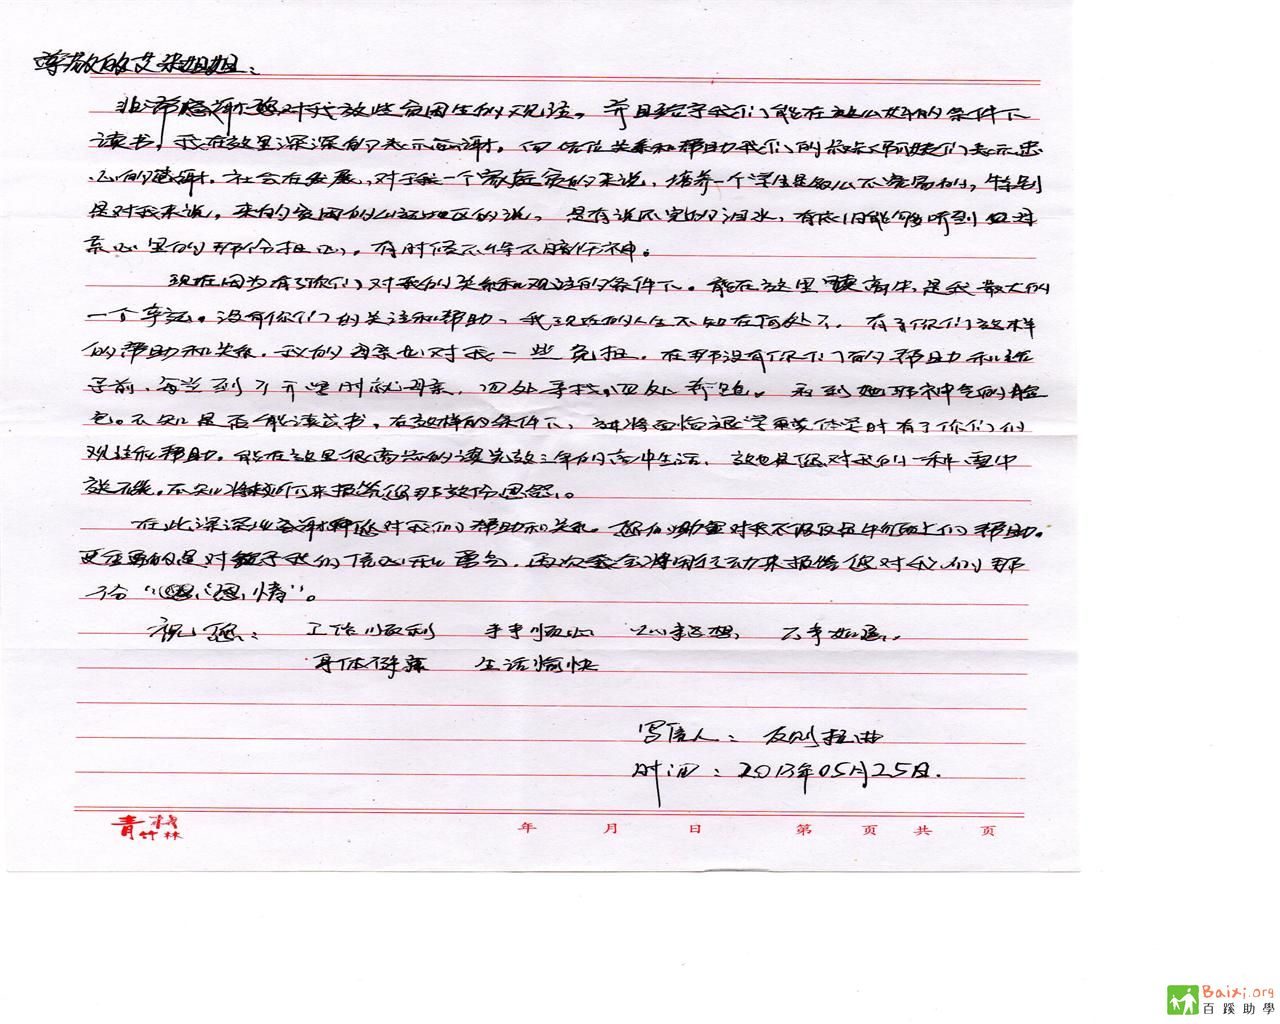 尊敬的艾朵姐姐:
非常感谢您对我这些贫困生的关注。并且给予我们能在这么好的条件下
读书,我在这里深深的表示感谢。向各位关系和帮助我们的表示忠
心的感谢。社会在发展,对于我一个家庭贫的来说,培养一个学生是多么不容易的,特别
是对我来说。来的贫困的山区地区的说,是有说不完的泪水,有依旧能够听到母
亲心里的那份担心。有时候不得不暗伤神。
现在因为有了你们对我的关系和关注的条件下。能在这里读高中,是我最大的
一个幸运。没有你们的关注和帮助,我现在的人生不知在何处了。有了你们这样
的帮助和关系,我的母亲也对我一些负担。在那没有你们的帮助和给
予前,每当到了开学时就母亲,四处寻找,四处奔跑。看到她那神气的脸
色。不知是否能读书,在这样的条件下,将面临退学要休学时有了你们的
关注和帮助。能在这里很高兴的读完这三年的高中生活,这也是您对我们一种雪中
送碳。不知将如何来报答您那这份恩怨。
在此深深地感谢您对我们帮助和关系。您们的对我不仅仅是上的帮助。
更重要的是对给予我们信心和勇气,再次会将用行动来报答您对我们那
份“恩情”。
祝您: 工作顺利 事事顺心 心想 万事如意。
身体健康 生活愉快
写信人: 友则拉
时间:2013年05月25日.
青竹林
年 月 日 第 页 共 页
Baixi.org
百蹊助學